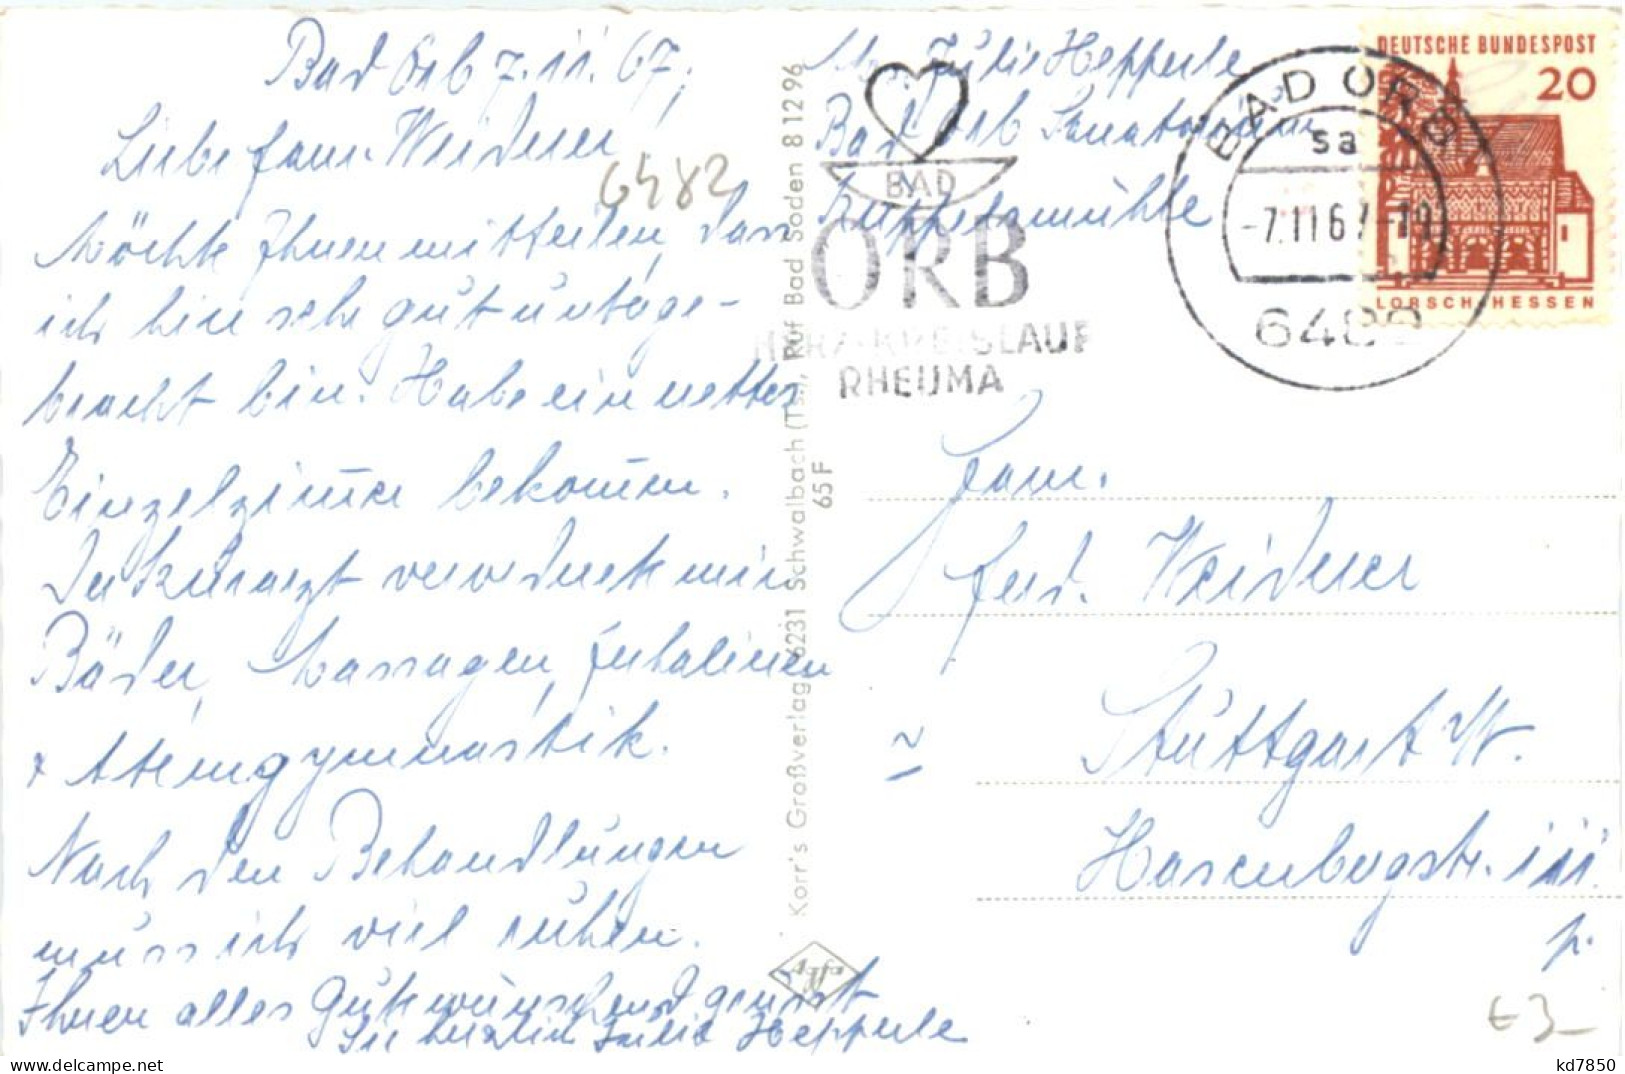 Bad Orb 7.11.67.
Liebe Fam. Weidner
6482
Möchte Ihnen mitteilen, dass
ich hier sehr gut unterge-
bracht bin. Habe ein nettes
Einzelzimmer bekommen.
Der Kurarzt verordnete mir
Bäder, Massagen, Inhalieren
+ Atemgymnastik.
Nach den Behandlungen
muss ich viel ruhen.
Ihnen alles Gute wünschend grüsst
Sie herzlich Julie Hepperle
Korr's Großverlag, 6231 Schwalbach (Ts.), Ruf Bad Soden 8 12 96
65 F
Agfa
Julie Hepperle
Bad Orb Sanatorium
Küppelsmühle
BAD
ORB
HERZ-KREISLAUF
RHEUMA
BAD ORB
sa
-7.11.67-19
6482
DEUTSCHE BUNDESPOST
20
LORSCH/HESSEN
Fam.
Ferd. Weidner
Stuttgart W.
Hasenbergstr. 111
p.
€ 3-
kd7850